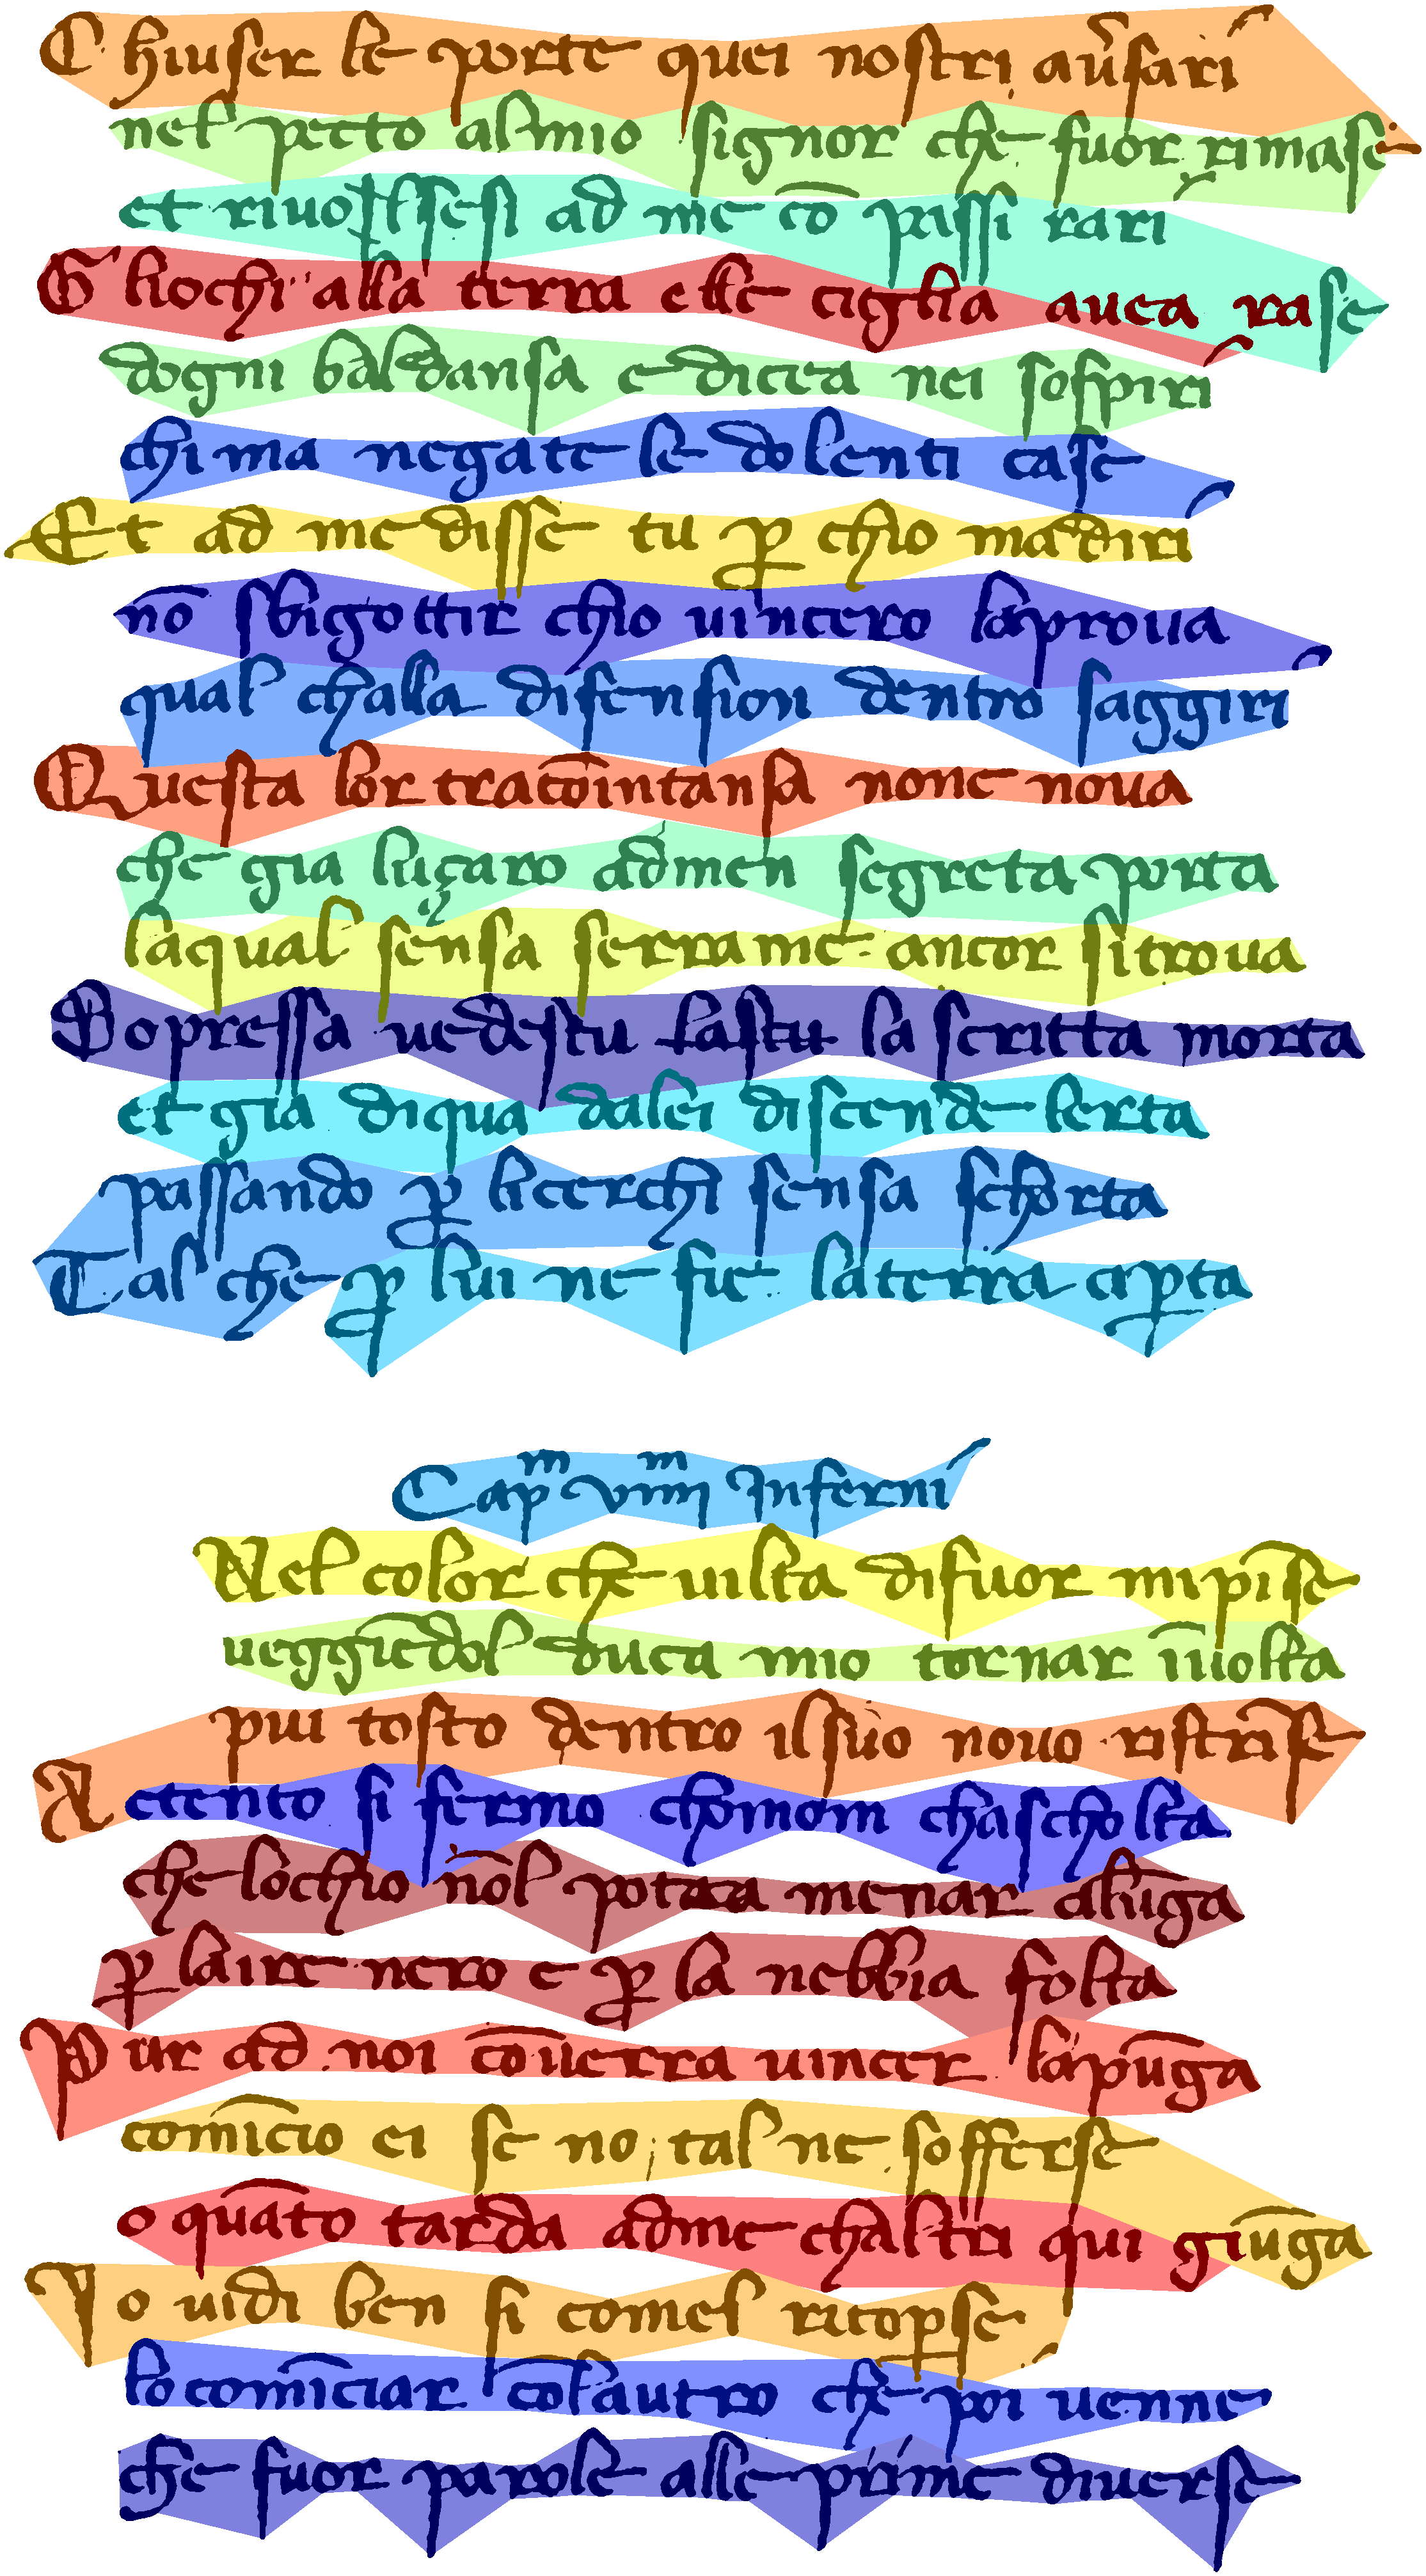 Chiuser le porte quei nostri au̅sari
nel pecto al mio signor che fuor rimase
et riuolsesi ad me co̅ passi rari
Gliochi alla terra elle ciglia auea rase
dogni baldansa e dicea nei sospiri
chi ma negate le dolenti case
Et ad me disse tu ꝑ chio madiri
no̅ sbigottir chio uincero laproua
qual challa difension dentro saggiri
Questa lor traco̅intansa none noua
che gia luçaro admen segreta porta
laqual sensa serrame ancor sitroua
Sopressa uedestu la scritta morta
et gia diqua dalei discende lerta
passando ꝑ licerchi sensa schorta
Tal che ꝑ lui ne fie laterra aꝑta
Capᵐ viiijᵐ Inferni
Nel color che uilta difuor mipi̅se
ueggie̅dol duca mio tornar i̅uolta
piu tosto dentro ilsuo nouo ristri̅se
Actento si fermo chomom chascholta
che lochio no̅l potea menar alu̅ga
ꝑ laire nero e ꝑ la nebbia folta
Pur ad noi co̅uerra uincer lapu̅ga
comi̅cio ei se no, tal ne sofferse
o qua̅to tarda adme chaltri qui giu̅ga
Io uidi ben si comel ricoꝑse
lo comi̅ciar co̅lautro che poi uenne
che fuor parole alle prime diuerse